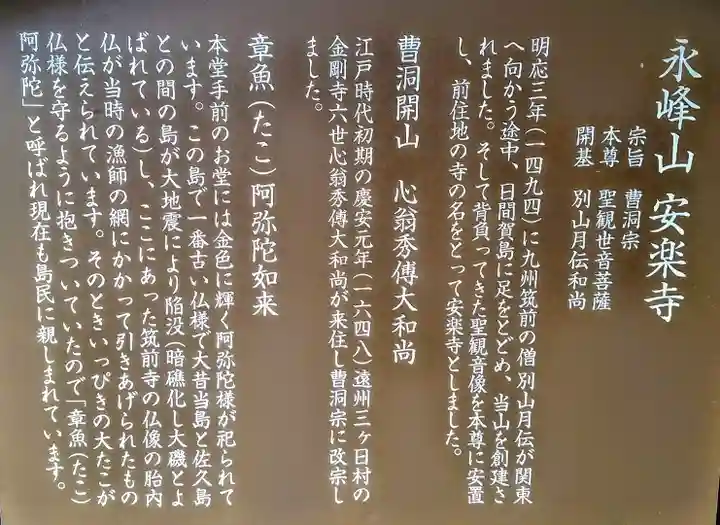 永峰山 安楽寺
宗旨 曹洞宗
本尊 聖観世音菩薩
開基 別山月伝和尚
明応三年(一四九四)に九州筑前の僧別山月伝が関東
へ向かう途中、日間賀島に足をとどめ、当山を創建さ
れました。そして背負ってきた聖観音像を本尊に安置
し、前住地の寺の名をとって安楽寺としました。
曹洞開山 心翁秀傳大和尚
江戸時代初期の慶安元年(一六四八)遠州三ヶ日村の
金剛寺六世心翁秀傳大和尚が来住し曹洞宗に改宗し
ました。
章魚(たこ)阿弥陀如来
本堂手前のお堂には金色に輝く阿弥陀様が祀られて
います。この島で一番古い仏様で大昔当島と佐久島
との間の島が大地震により陥没(暗礁化し大磯とよ
ばれている)し、ここにあった筑前寺の仏像の胎内
仏が当時の漁師の網にかかって引きあげられたもの
と伝えられています。そのときいっぴきの大たこが
仏様を守るように抱きついていたので「章魚(たこ)
阿弥陀」と呼ばれ現在も島民に親しまれています。